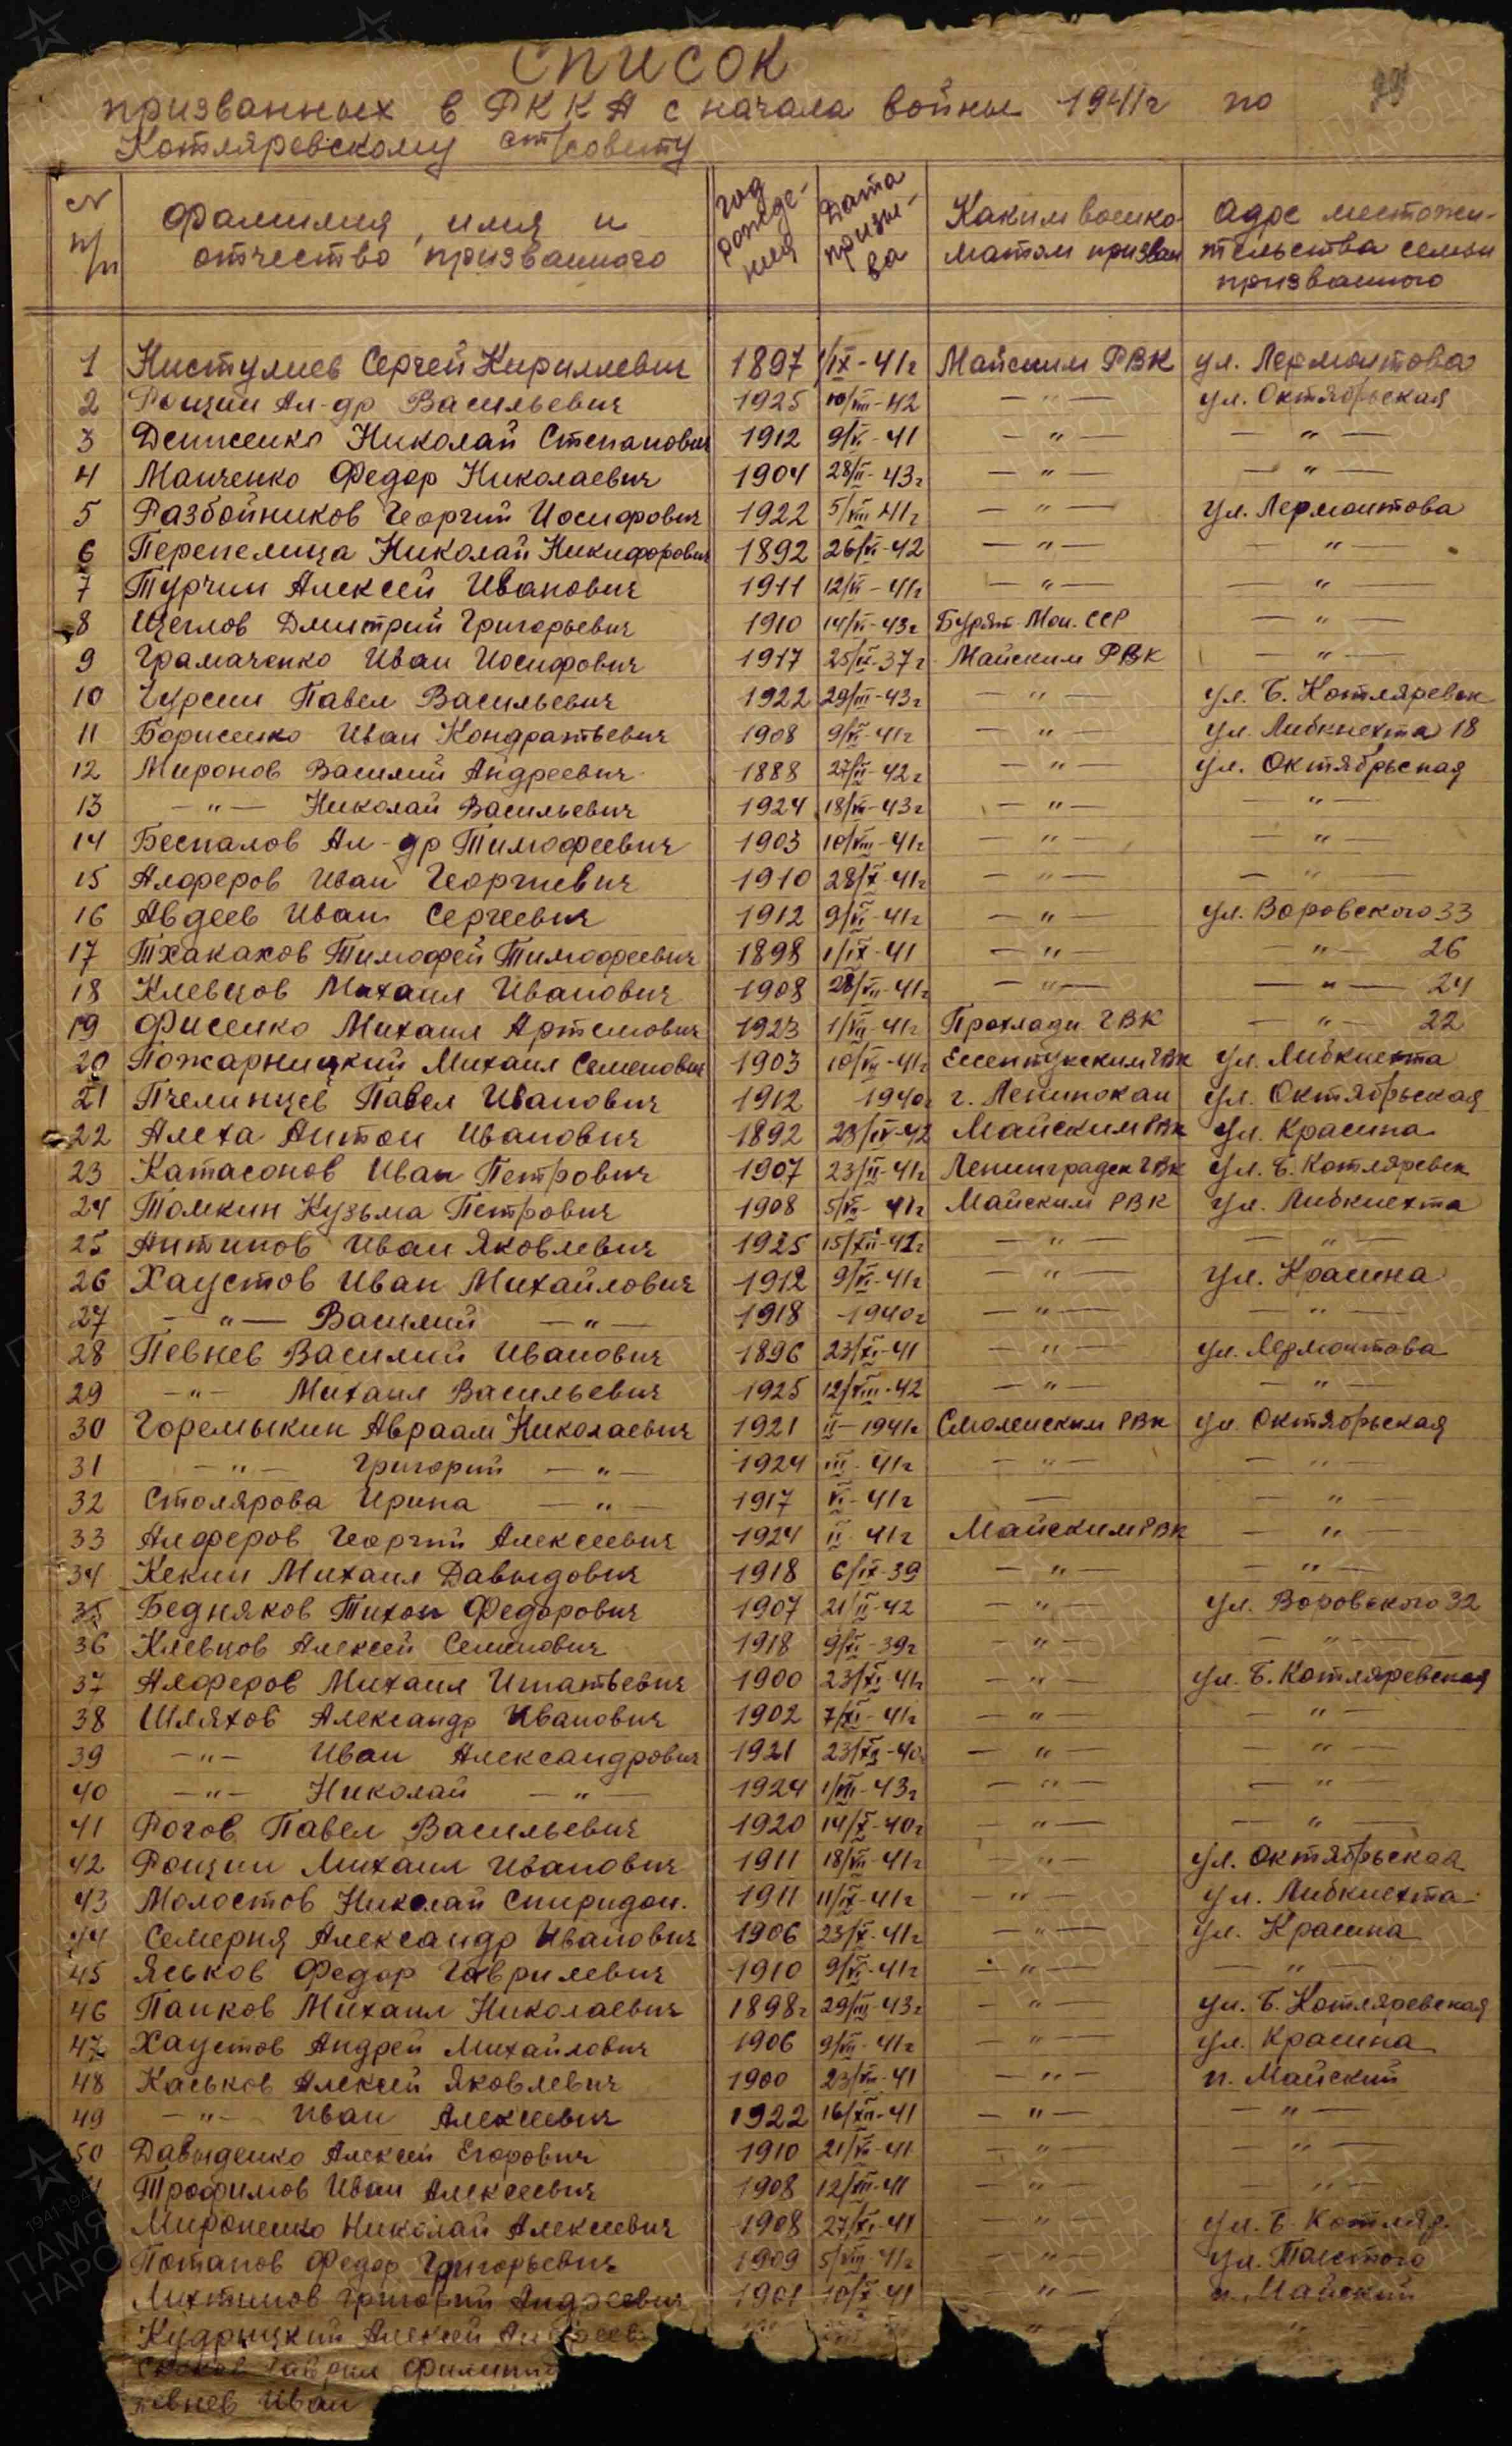 Список
призванных в РККА с начала войны 1941г по
Котляревскому ст/совету
№ п/п
Фамилия, имя и отчество призванного
Год рождения
Дата призыва
Каким военкоматом призван
Адрс местожительства семьи призванного
1 Нистулиев Сергей Кириллевич 1897 1/IX-41г Майским РВК ул. Лермонтова
2 Рощин Ал-др Васильевич 1925 10/VIII-42 — " — ул. Октябрьская
3 Денисенко Николай Степанович 1912 9/VI-41 — " — — " —
4 Манченко Федор Николаевич 1904 28/II-43г — " — — " —
5 Разбойников Георгий Иосифович 1922 5/VIII 41г — " — ул. Лермонтова
6 Перепелица Николай Никифорович 1892 26/VI-42 — " — — " —
7 Турчин Алексей Иванович 1911 12/VI-41г — " — — " —
8 Щеглов Дмитрий Григорьевич 1910 14/VI-43г Бурят Мон. ССР — " —
9 Грамаченко Иван Иосифович 1917 25/IX-37г Майским РВК — " —
10 Чурсин Павел Васильевич 1922 29/III-43г — " — ул. Б. Котляревск
11 Борисенко Иван Кондратьевич 1908 9/VI-41г — " — ул. Либкнехта 18
12 Миронов Василий Андреевич 1888 27/II-42г — " — ул. Октябрьская
13 — " — Николай Васильевич 1924 18/VI-43г — " — — " —
14 Беспалов Ал-др Тимофеевич 1903 10/VIII-41г — " — — " —
15 Алферов Иван Георгиевич 1910 28/X-41г — " — — " —
16 Авдеев Иван Сергеевич 1912 9/VI-41г — " — ул. Воровского 33
17 Тхакахов Тимофей Тимофеевич 1898 1/IX-41 — " — — " — 26
18 Клевцов Михаил Иванович 1908 28/VII-41г — " — — " — 24
19 Фисенко Михаил Артемович 1923 1/VII-41г Прохладн ГВК — " — 22
20 Пожарницкий Михаил Семенович 1903 10/VII-41г Ессентукским ГВК ул. Либкнехта
21 Пчелинцев Павел Иванович 1912 1940г г. Ленинокан ул. Октябрьская
22 Алеха Антон Иванович 1892 23/IV-42 Майским РВк ул. Красина
23 Катасонов Иван Петрович 1907 23/II-41г Ленинградск ГВк ул. Б. Котляревск
24 Томкин Кузьма Петрович 1908 5/VII-41г Майским РВК ул. Либкнехта
25 Антипов Иван Яковлевич 1925 15/XII-42г — " — — " —
26 Хаустов Иван Михайлович 1912 9/VI-41г — " — ул. Красина
27 — " — Василий — " — 1918 -1940г — " — — " —
28 Певнев Василий Иванович 1896 23/XI-41 — " — ул. Лермонтова
29 — " — Михаил Васильевич 1925 12/VIII-42 — " — — " —
30 Горемыкин Авраам Николаевич 1921 II-1941г Смоленским РВк ул. Октябрьская
31 — " — Григорий — " — 1924 III-41г — " — — " —
32 Столярова Ирина — " — 1917 VI-41г — — " —
33 Алферов Георгий Алексеевич 1924 II 41г Майским РВк — " —
34 Кекин Михаил Давыдович 1918 6/IX-39 — " — — " —
35 Бедняков Тихон Федорович 1907 21/II-42 — " — ул. Воровского 32
36 Клевцов Алексей Семенович 1918 9/XI-39г — " — — " —
37 Алферов Михаил Игнатьевич 1900 23/XI-41г — " — ул. Б. Котляревская
38 Шляхов Александр Иванович 1902 7/XI-41г — " — — " —
39 — " — Иван Александрович 1921 23/XII-40г — " — — " —
40 — " — Николай — " — 1924 1/VIII-43г — " — — " —
41 Рогов Павел Васильевич 1920 14/X-40г — " — — " —
42 Рощин Михаил Иванович 1911 18/VII-41г — " — ул. Октябрьская
43 Молостов Николай Спиридон. 1911 11/IX-41г — " — ул. Либкнехта
44 Семерня Александр Иванович 1906 23/X-41г — " — ул. Красина
45 Яськов Федор Гаврилевич 1910 9/VI-41г — " — — " —
46 Панков Михаил Николаевич 1898г 29/III-43г — " — ул. Б. Котляревская
47 Хаустов Андрей Михайлович 1906 9/VII-41г — " — ул. Красина
48 Каськов Алексей Яковлевич 1900 23/VIII-41 — " — п. Майский
49 — " — Иван Алексеевич 1922 16/XII-41 — " — — " —
50 Давыденко Алексей Егорович 1910 21/VI-41 — " — — " —
Трофимов Иван Алексеевич 1908 12/VII-41 — " — — " —
Мироненко Николай Алексеевич 1908 27/XI-41 — " — ул. Б. Котляр.
Потапов Федор Григорьевич 1909 5/VIII-41г — " — ул. Толстого
Григорий Андреевич 1901 10/X-41 — " — п. Майский
Кудрицкий Алексей — " — — " —
Гаврил
Иван